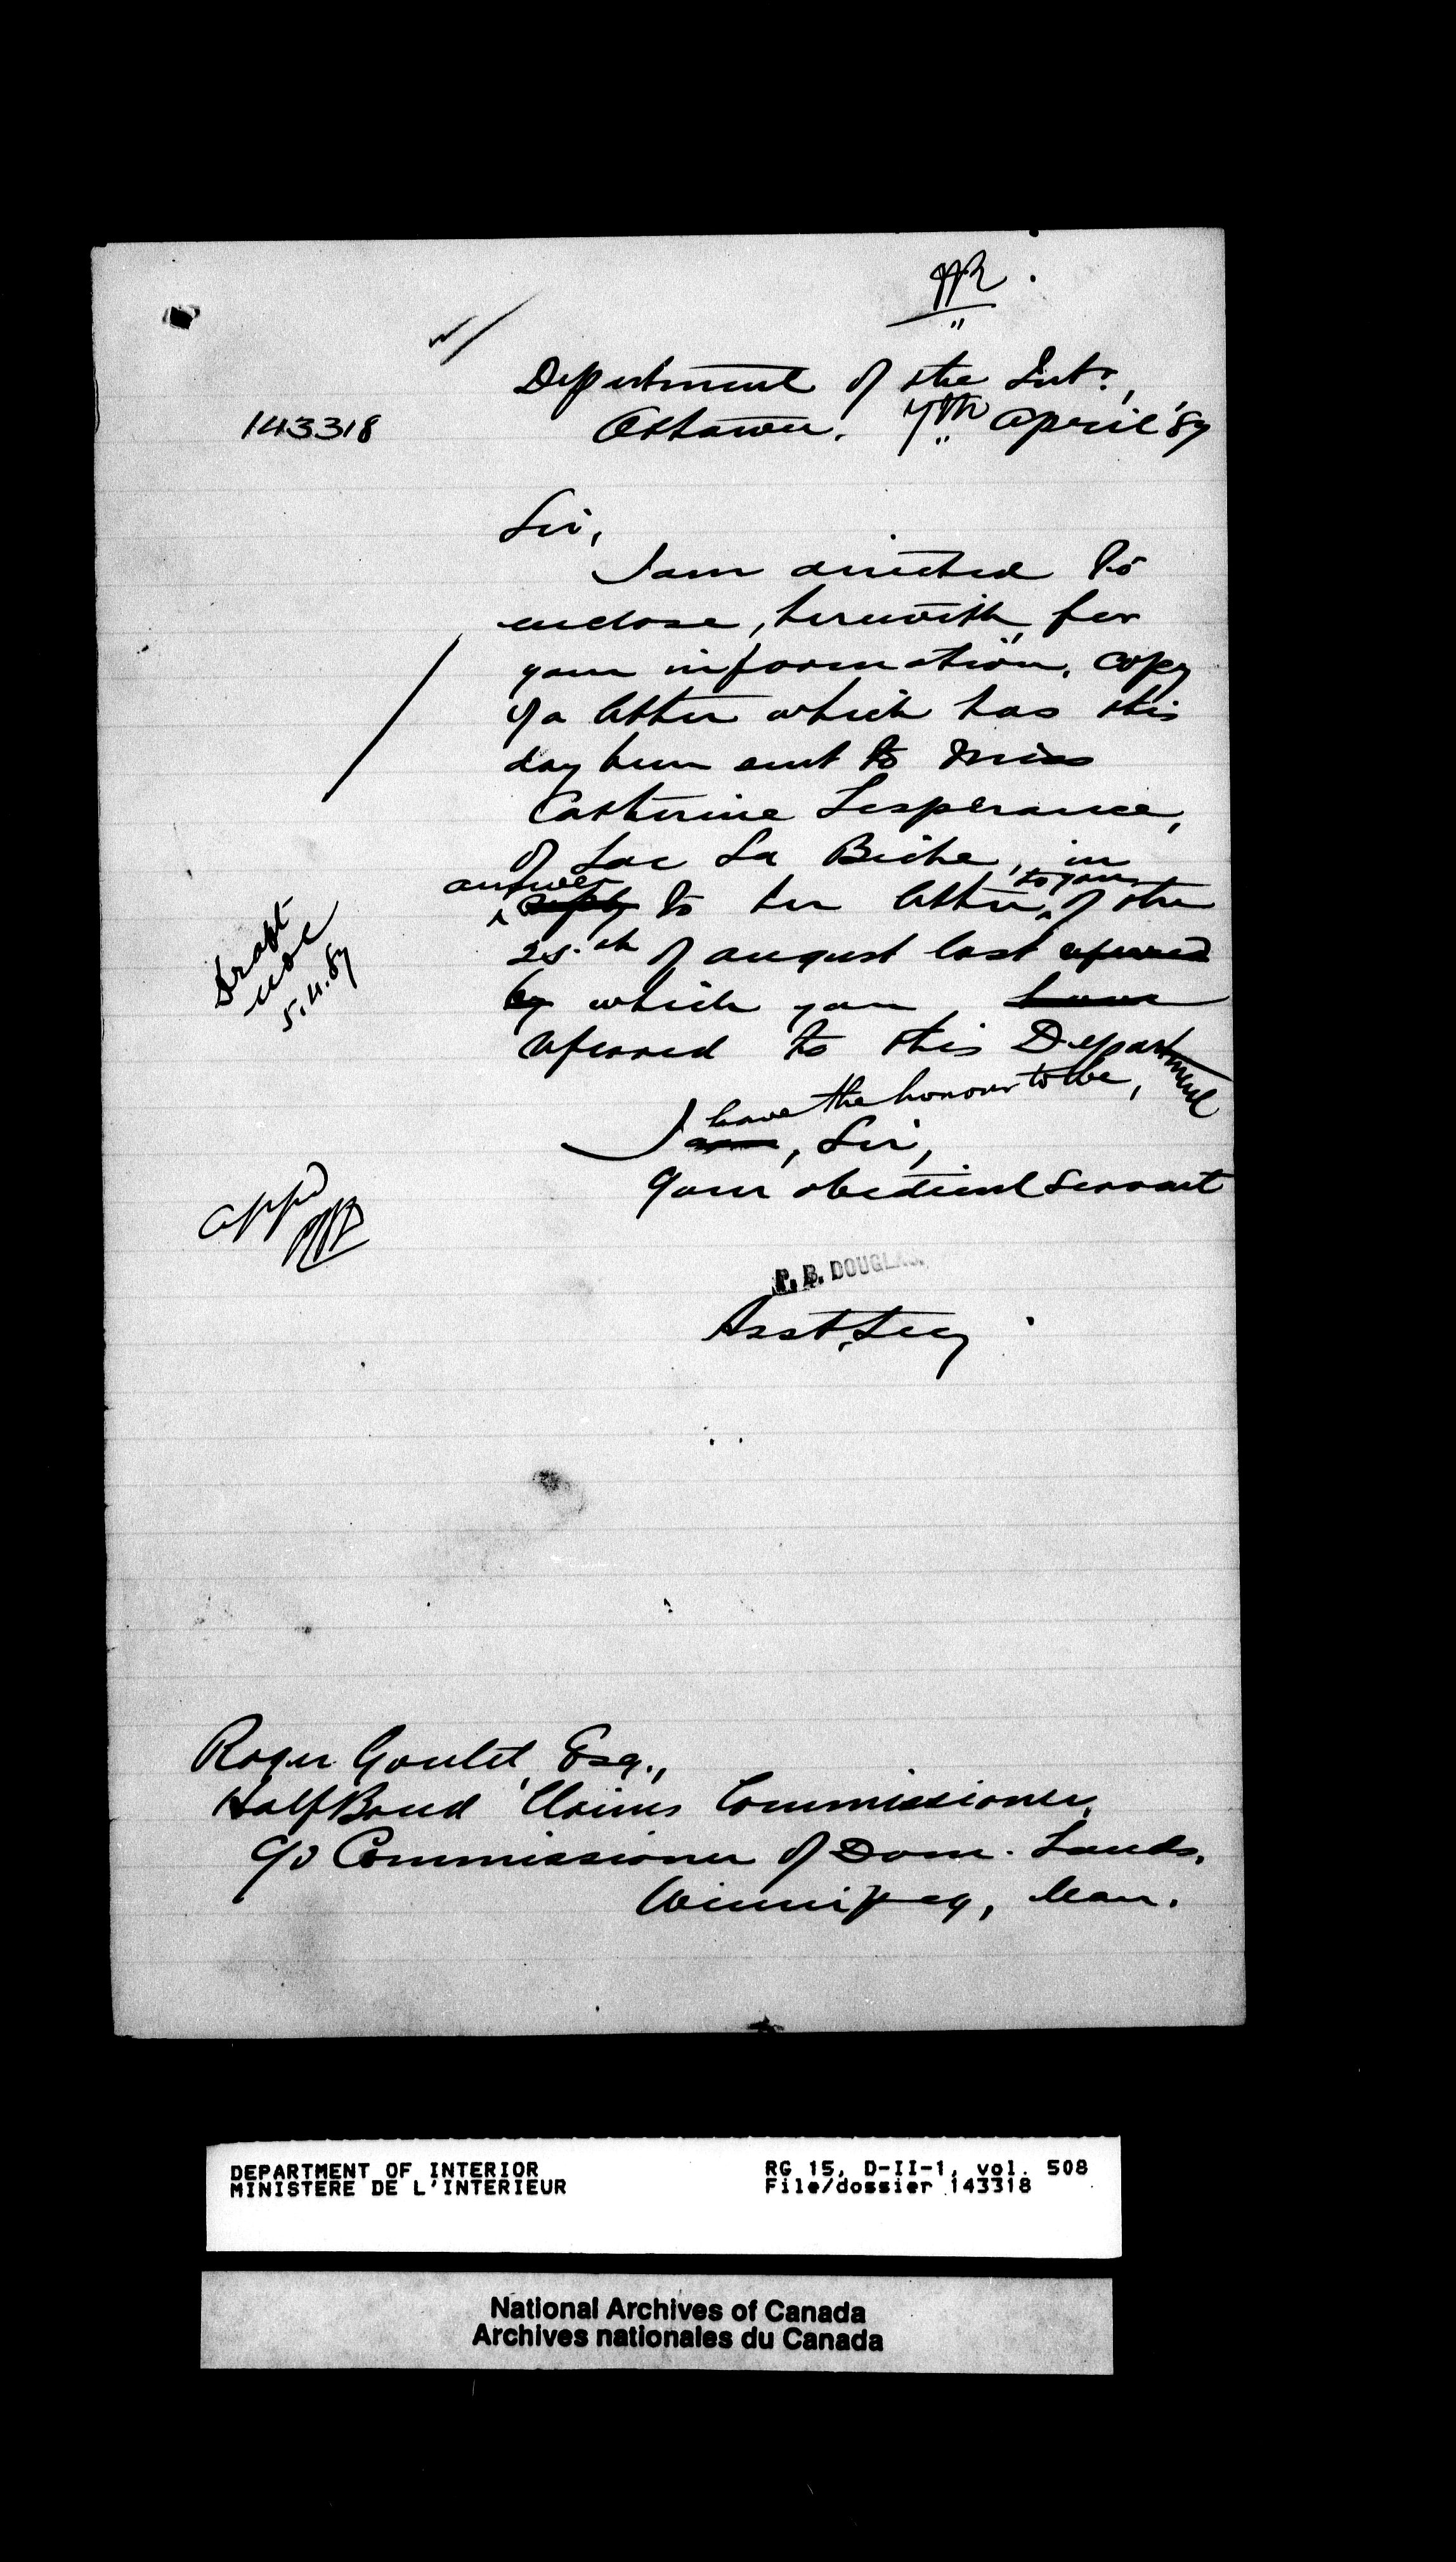 Department of the Intr,
143318
Ottawa. 7th April '87
Sir,
I am directed to
enclose, herewith, for
your information, copy
of a letter which has this
day been sent to Miss
Catherine Lesperance,
of Lac La Biche, in
answer to you
reply to her letter, of the
25th of August last referred
by which you have
referred to this Department
have the honour to be,
I am, Sir,
Your obedient Servant
Draft
5.4.87
appd
P. B. DOUGLAS.
Asst. Secy
Roger Goulet, Esq.,
Half Breed Claims Commissioner,
c/o Commissioner of Dom. Lands,
Winnipeg, Man.
DEPARTMENT OF INTERIOR
MINISTERE DE L'INTERIEUR
RG 15, D-II-1, vol. 508
File/dossier 143318
National Archives of Canada
Archives nationales du Canada